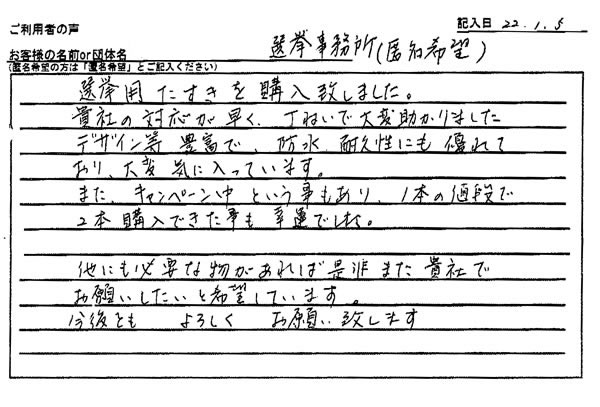 ご利用者の声
記入日 22.1.5
お客様の名前or団体名
(匿名希望の方は「匿名希望」とご記入ください)
選挙事務所(匿名希望)
選挙用たすきを購入致しました。
貴社の対応が早く、丁ねいで大変助かりました
デザイン等豊富で、防水、耐久性にも優れて
おり、大変気に入っています。
また、キャンペーン中という事もあり、1本の値段で
2本購入できた事も幸運でした。
他にも必要な物があれば是非また貴社で
お願いしたいと希望しています。
今後とも よろしく お願い致します